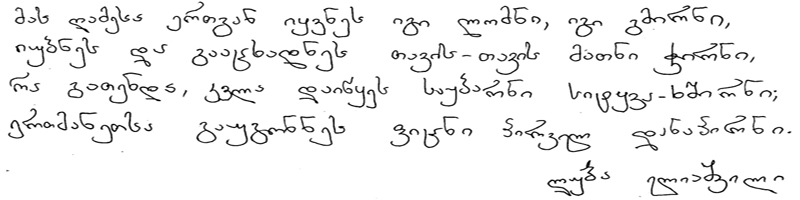 მას ღამესა ერთგან იყვნეს იგი ლომნი, იგი გმირნი,
იუბნეს და გააცხადნეს თავის-თავის მათნი ჭირნი,
რა გათენდა, კვლა დაიწყეს საუბარნი სიტყვა-ხშირნი;
ერთმანეთსა გაუგონნეს ფიცნი პირველ დანაპირნი.
ლუბა ელიაშვილი